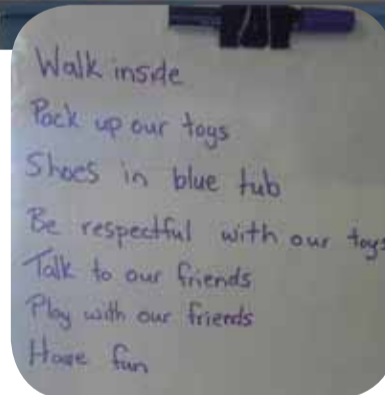 Walk inside
Pack up our toys
Shoes in blue tub
Be respectful with our toys
Talk to our friends
Play with our friends
Have fun